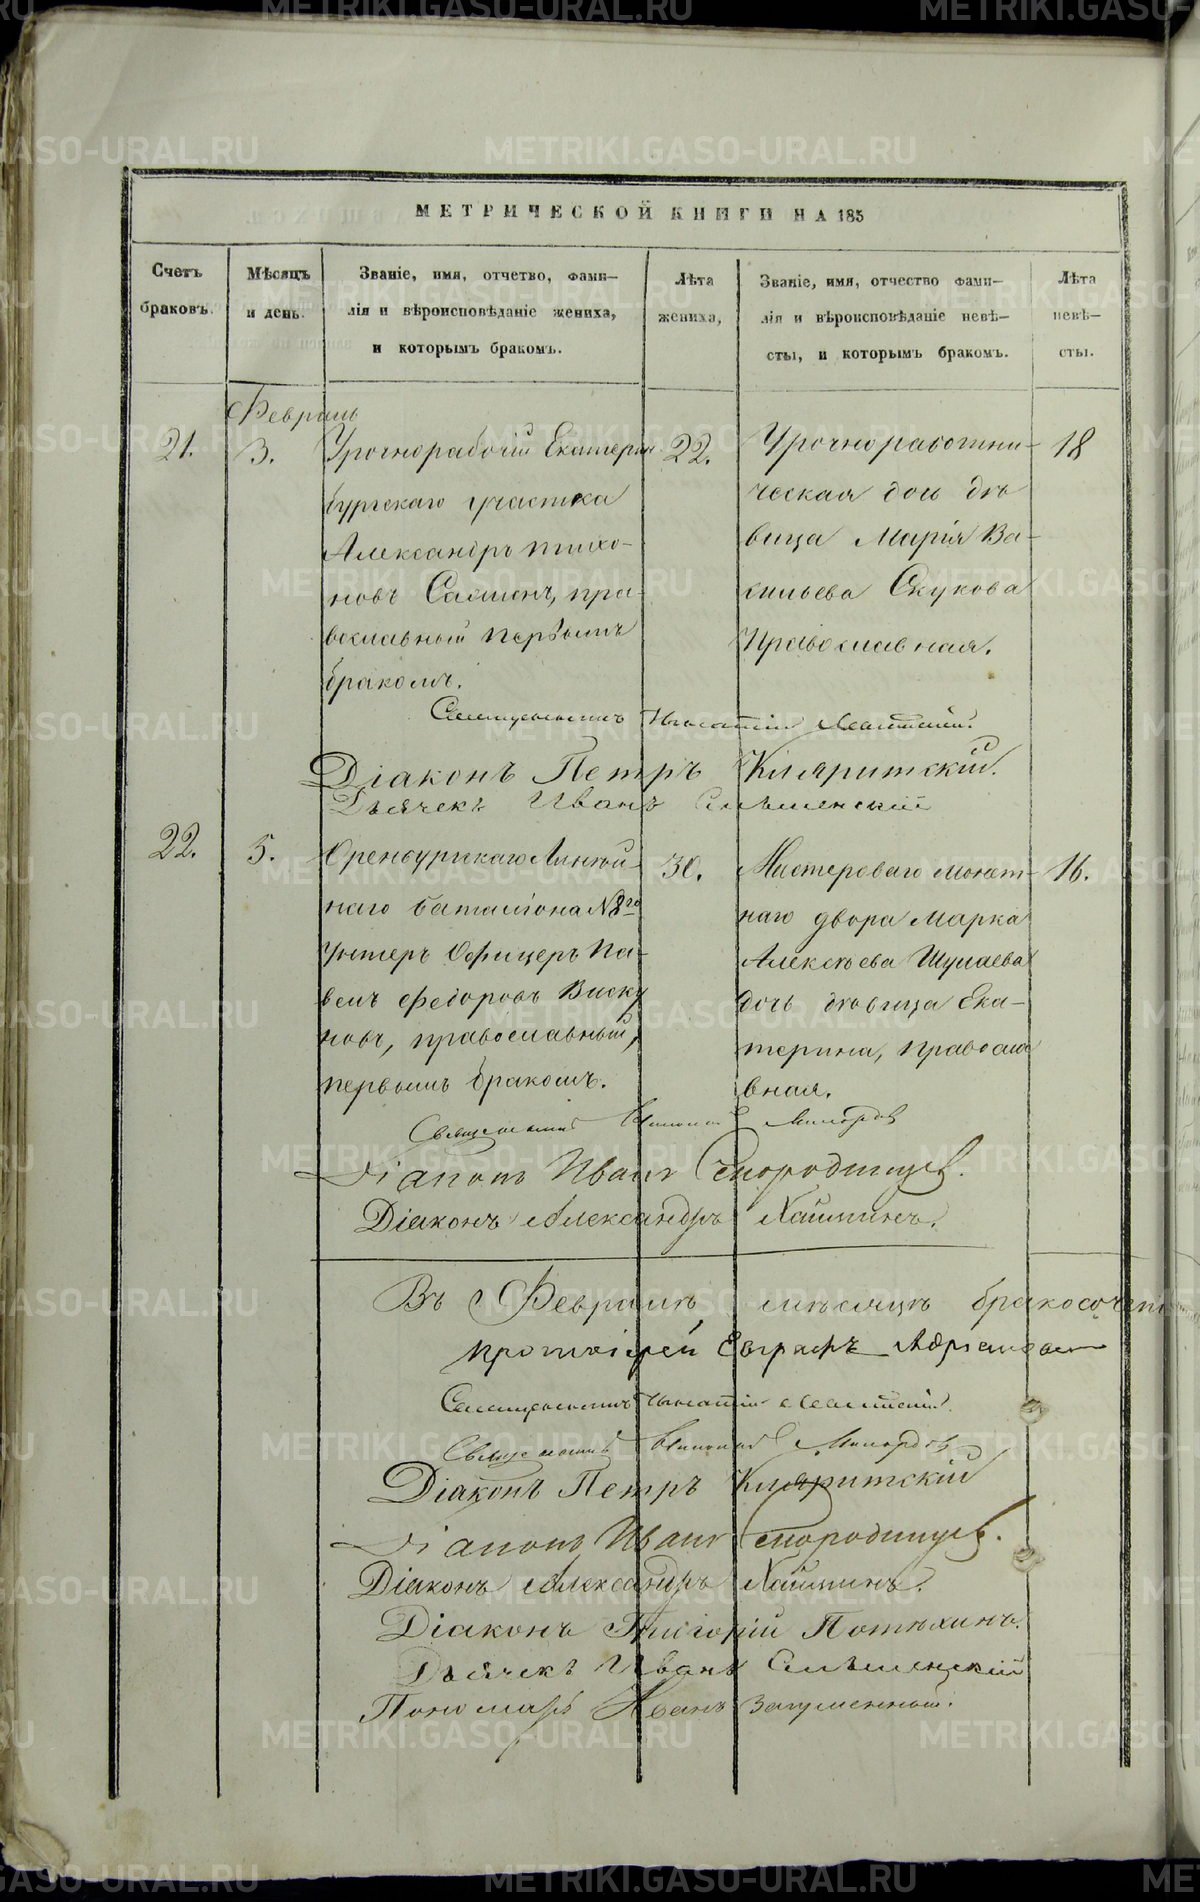 МЕТРИЧЕСКОЙ КНИГИ НА 185
Счетъ браковъ.
Мѣсяцъ и день.
Званіе, имя, отчетво, фами-
лія и вѣроисповѣданіе жениха,
и которымъ бракомъ.
Лѣта жениха,
Званіе, имя, отчество фами-
лія и вѣроисповѣданіе невѣ-
сты, и которымъ бракомъ.
Лѣта невѣ-
сты.
Февраль
21.
3.
Урочнорабочій Екатерин
бургскаго участка
Александръ Тихо-
новъ православный первымъ
бракомъ.
22.
Урочноработни-
ческая дочь дѣ
вица Марія Ва-
сильева Скукова
Православная.
18
Священникъ
Діаконъ Петръ Кляритскій.
Дьячекъ Иванъ
22.
5.
Оренбургскаго Линѣй-
наго баталіона №8го
Унтеръ Офицеръ Па-
велъ Федоровъ Виску
новъ, православный,
первымъ бракомъ.
30.
Мастероваго монет-
наго двора Марка
Алексѣева Шулаева
дочь дѣвица Ека-
терина, Правосла
вная.
16.
Священникъ
Діаконъ Иванъ Смородинцевъ.
Діаконъ Александръ Хайминъ.
Въ Февралѣ мѣсяцѣ бракосочета
протоіерей Евграфъ
Священникъ
Священникъ
Діаконъ Петръ Кляритскій
Діаконъ Иванъ Смородинцевъ.
Діаконъ Александръ Хайминъ.
Діаконъ Григорій Потѣхинъ.
Дьячекъ Иванъ
Пономарь Иванъ Загуменный.
METRIKI.GASO-URAL.RU